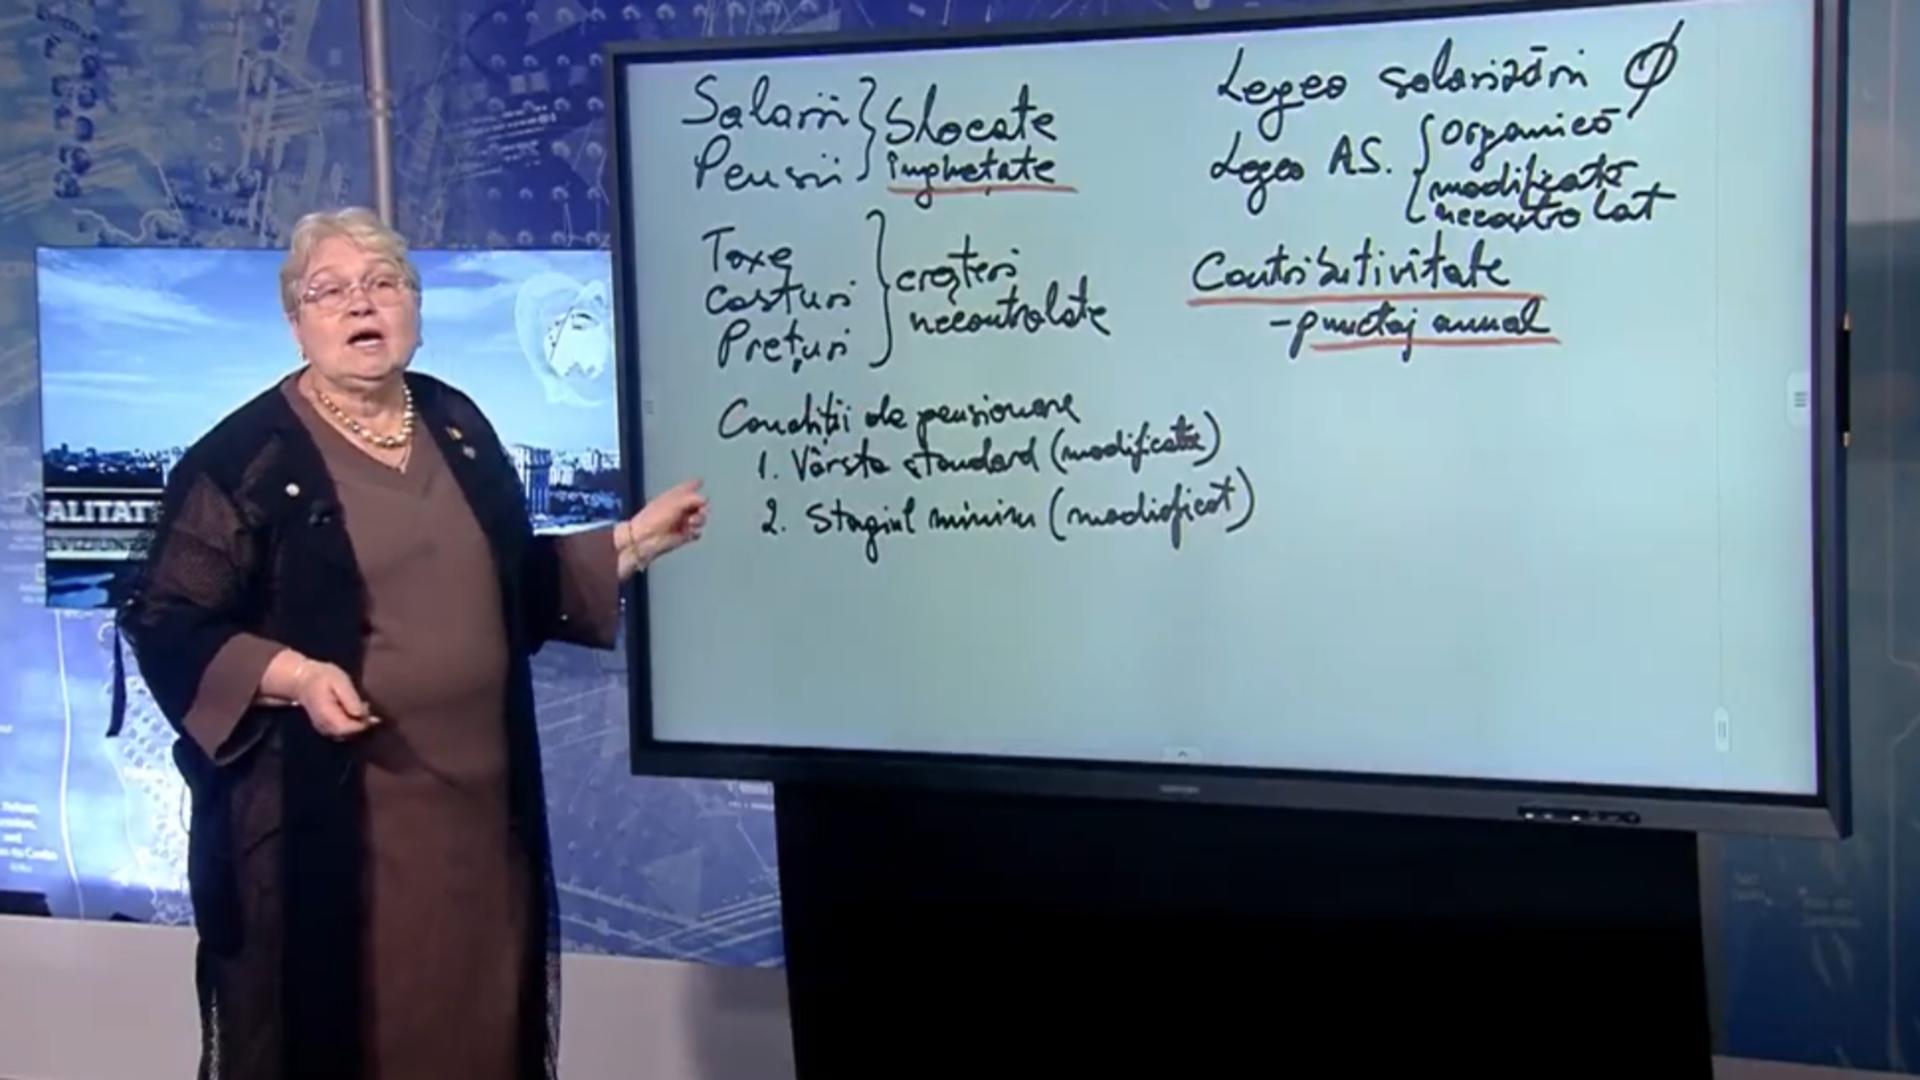 Salarii } Blocate
Pensii } înghețate
Taxe
Costuri } creșteri
Prețuri } necontrolate
Condiții de pensionare
1. Vârsta standard (modificata)
2. Stagiul minim (modificat)
Legea salarizării Ø
Legea A.S. { organică
modificato
necontrolat
Contributivitate
- punctaj anual
ALITAT
EVIZIUNE